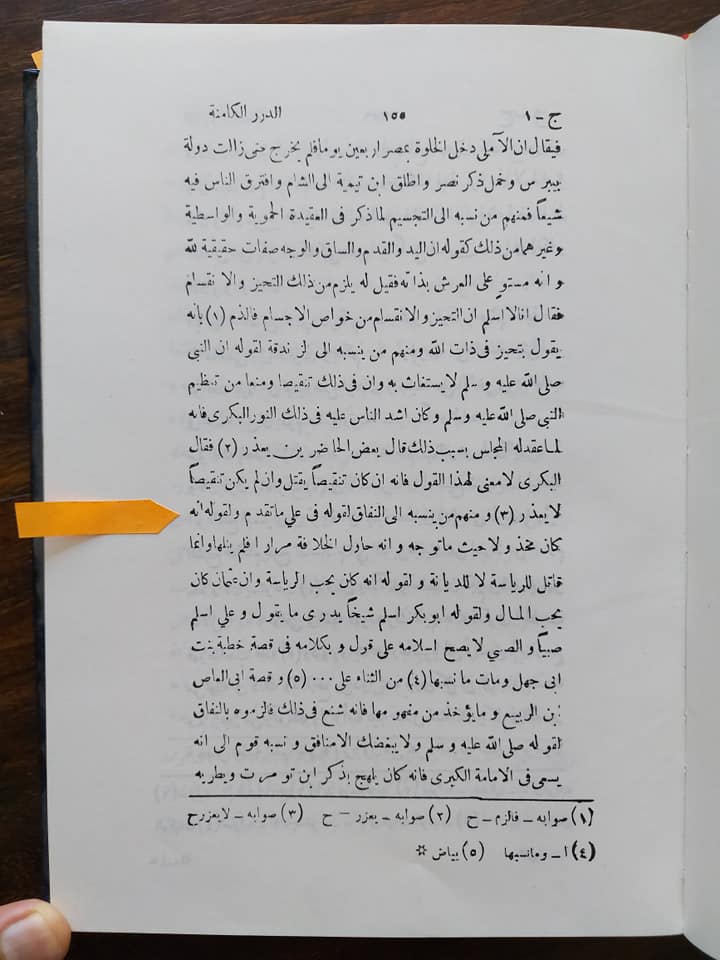 ج - ١ ١٥٥ الدرر الكامنة
فيقال ان الآملى دخل الخلوة بمصر اربعين يوما فلم يخرج حتى زالت دولة
بيبرس وخمل ذكر نصر واطلق ابن تيمية الى الشام وافترق الناس فيه
شيعاً فمنهم من نسبه الى التجسيم لما ذكر فى العقيدة الحموية والواسطية
وغيرهما من ذلك كقوله ان اليد والقدم والساق والوجه صفات حقيقية لله
وانه مستوٍ على العرش بذاته فقيل له يلزم من ذلك التحيز والانقسام
فقال انا لا اسلم ان التحيز والانقسام من خواص الاجسام فالذم (١) بأنه
يقول بتحيز فى ذات الله ومنهم من ينسبه الى الزندقة لقوله ان النبى
صلى الله عليه وسلم لا يستغاث به وان فى ذلك تنقيصا ومنعا من تعظيم
النبى صلى الله عليه وسلم وكان اشد الناس عليه فى ذلك النور البكرى فانه
لما عقد له المجلس بسبب ذلك قال بعض الحاضرين يعذر (٢) فقال
البكرى لا معنى لهذا القول فانه ان كان تنقيصاً يقتل وان لم يكن تنقيصاً
لا يعذر (٣) ومنهم من ينسبه الى النفاق لقوله فى علي ما تقدم ولقوله انه
كان مخذولا حيث ما توجه وانه حاول الخلافة مرارا فلم ينلها وانما
قاتل للرياسة لا للديانة ولقوله انه كان يحب الرياسة وان عثمان كان
يحب المال ولقوله ابوبكر اسلم شيخاً يدرى ما يقول وعلي اسلم
صبياً والصبي لا يصح اسلامه على قول وبكلامه فى قصة خطبة بنت
ابى جهل ومات ما نسبها (٤) من الثناء على ... (٥) وقصة ابى العاص
ابن الربيع وما يؤخذ من مفهومها فانه شنع فى ذلك فالزموه بالنفاق
لقوله صلى الله عليه وسلم ولا يبغضك الا منافق ونسبه قوم الى انه
يسعى فى الامامة الكبرى فانه كان يلهج بذكر ابن تومرت ويطريه
(١) صوابه - فالزم - ح (٢) صوابه - يعزر - ح (٣) صوابه - لا يعزر ح
(٤) ا - وما نسيها (٥) بياض *